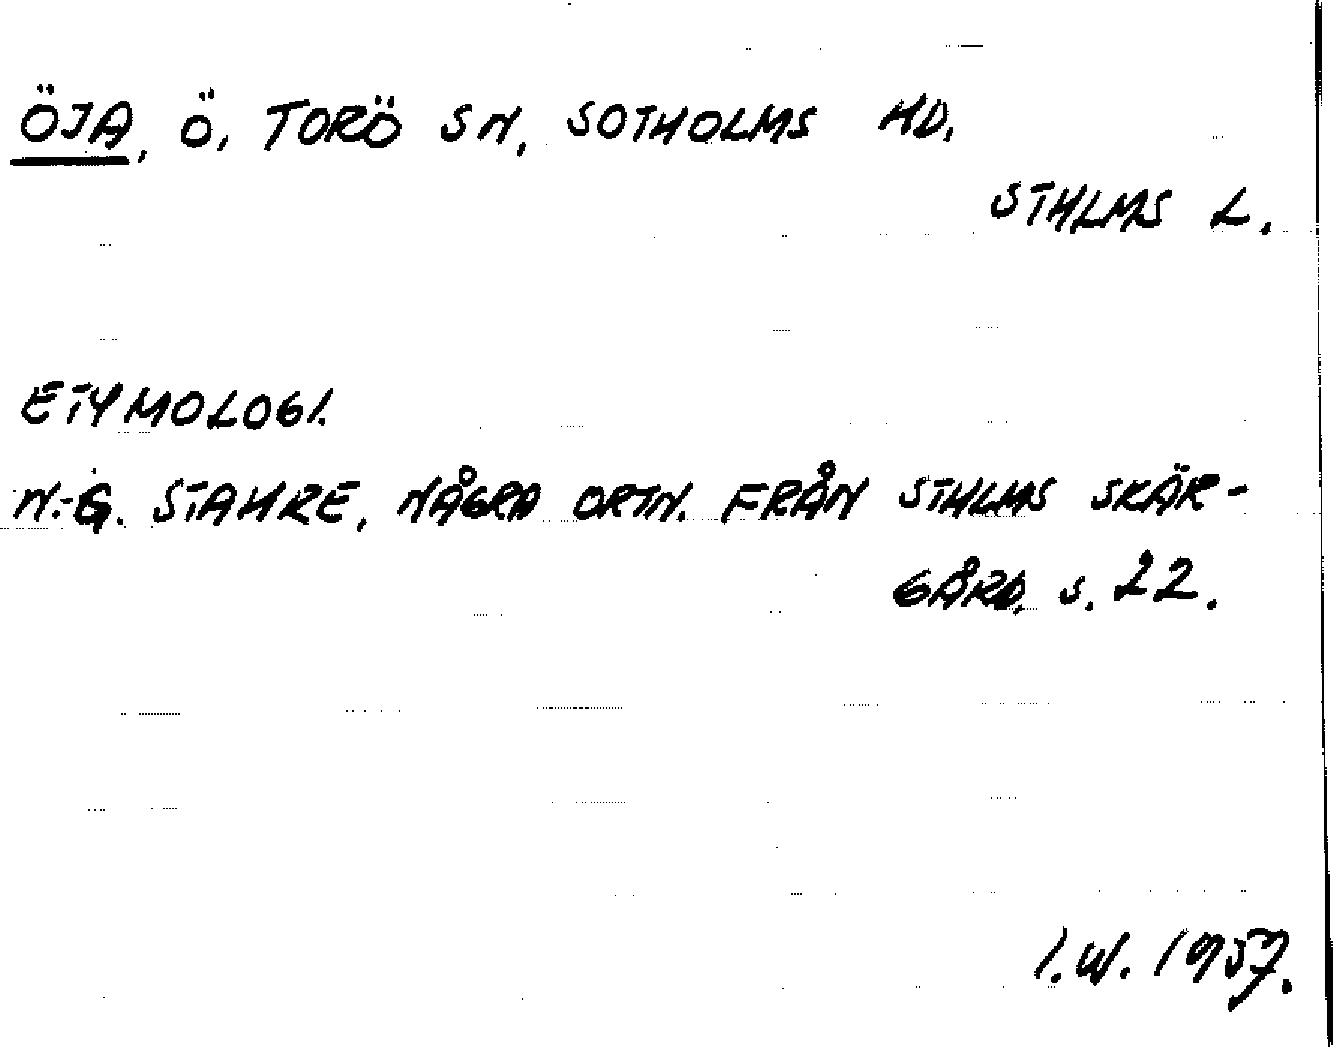 ÖJA, Ö, TORÖ SN, SOTHOLMS HD.
STHLMS L.
ETYMOLOGI.
N.-G. STAHRE, NÅGRA ORTN. FRÅN STHLMS SKÄR-
GÅRD, s. 22.
I.W. 1957.